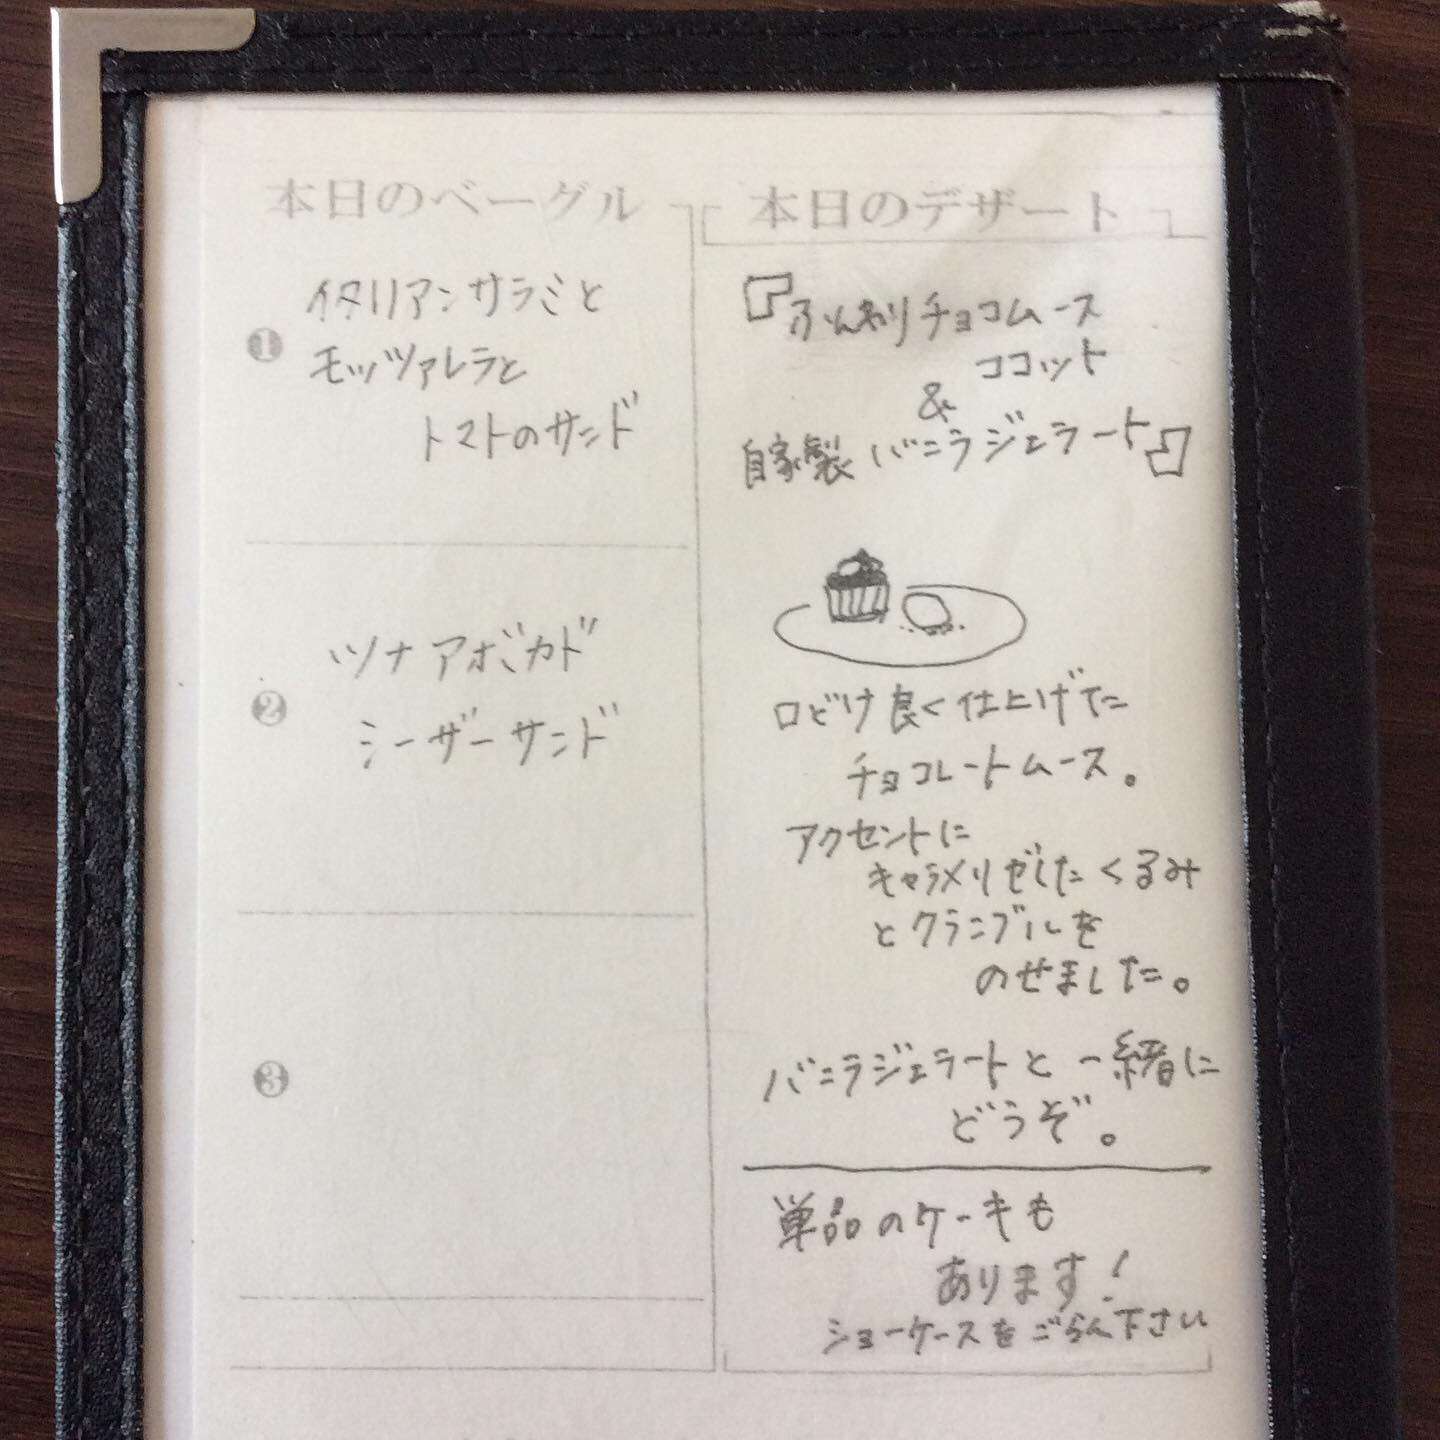 本日のベーグル
❶
イタリアンサラミと
モッツァレラと
トマトのサンド
❷
ツナアボカド
シーザーサンド
❸
本日のデザート
『ふんわりチョコムース
ココット
&
自家製バニラジェラート』
口どけ良く仕上げた
チョコレートムース。
アクセントに
キャラメリゼしたくるみ
とクランブルを
のせました。
バニラジェラートと一緒に
どうぞ。
単品のケーキも
あります!
ショーケースをごらん下さい